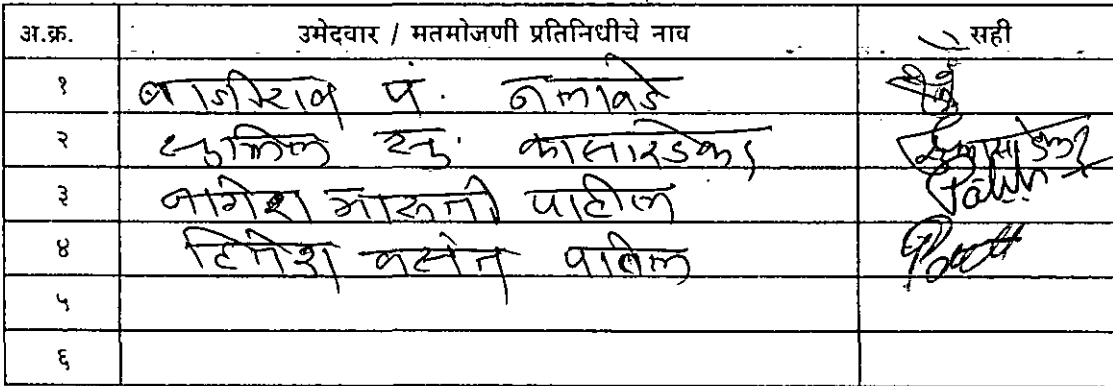 अ.क्र. उमेदवार / मतमोजणी प्रतिनिधीचे नाव सही
१ बाजीराव पं. नलावडे
२ सुनिल रघु. कासारडेकर
३ नागेश मारुती पाटील Patil
४ हितेश वसंत पाटील
५
६